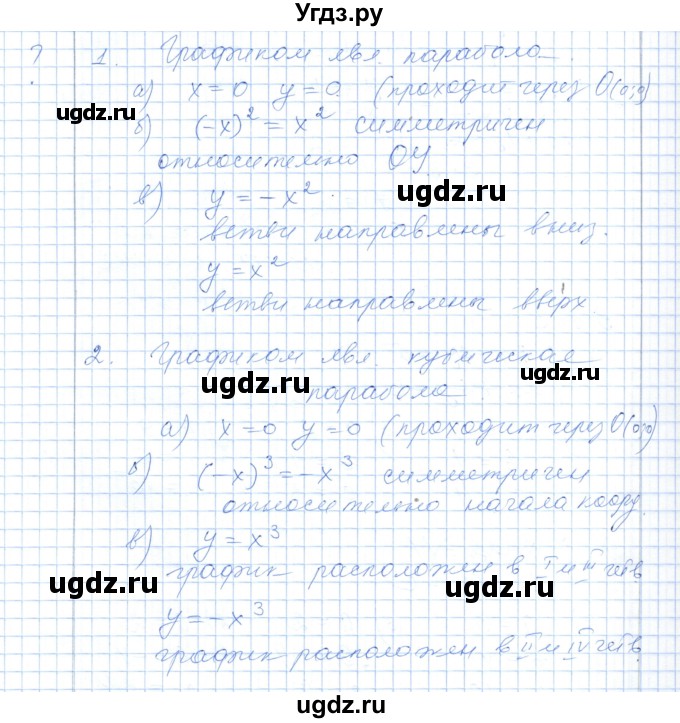 Угдз.ру
? 1. Графиком явл. парабола.
ugdz.ru
а) x = 0 y = 0 (проходит через O(0;0)
ugdz.ru ugdz.ru
б) (-x)² = x² симметричен
относительно OY
ugdz.ru
в) y = -x².
ветви направлены вниз.
y = x²
ветви направлены вверх
2. Графиком явл. кубическая
ugdz.ru ugdz.ru
парабола.
а) x = 0 y = 0 (проходит через O(0;0)
б) (-x)³ = -x³ симметричен
ugdz.ru
относительно начала коорд.
в) y = x³
график расположен в I и III четв
ugdz.ru ugdz.ru
y = -x³
график расположен в II и IV четв.
ugdz.ru
Угдз.ру